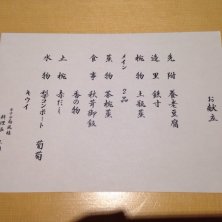 お献立
先附 養老豆腐
造里 鉄寸
椀物 土瓶蒸
メイン 2品
蒸物 茶椀蒸
食事 秋芳御飯
香の物
止椀 赤だし
水物 梨コンポート 葡萄
キウイ
料理長